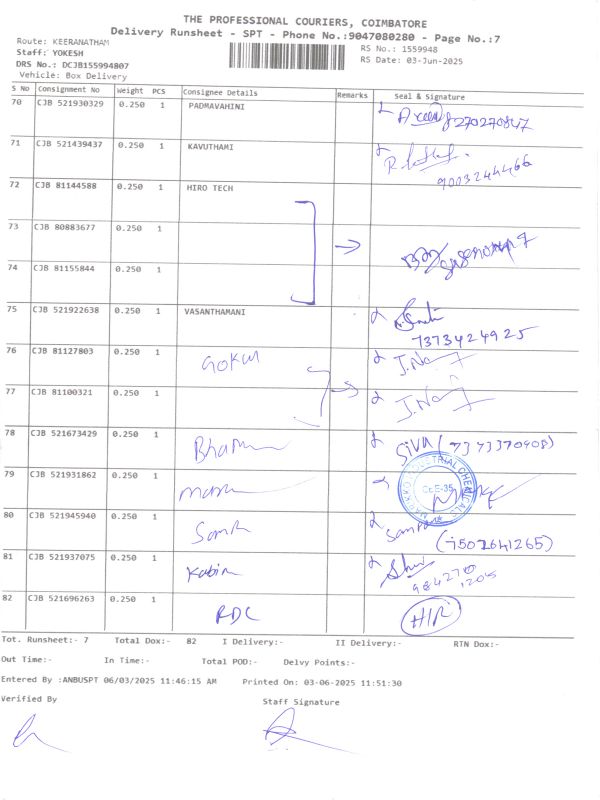 THE PROFESSIONAL COURIERS, COIMBATORE
Delivery Runsheet - SPT - Phone No.:9047080280 - Page No.:7
Route: KEERANATHAM
RS No.: 1559948
Staff: YOKESH
RS Date: 03-Jun-2025
DRS No.: DCJB155994807
Vehicle: Box Delivery
S No Consignment No Weight PCS Consignee Details Remarks Seal & Signature
70 CJB 521930329 0.250 1 PADMAVAHINI
71 CJB 521439437 0.250 1 KAVUTHAMI
9003244466
72 CJB 81144588 0.250 1 HIRO TECH
73 CJB 80883677 0.250 1
74 CJB 81155844 0.250 1
75 CJB 521922638 0.250 1 VASANTHAMANI
7373424925
76 CJB 81127803 0.250 1 GOKUL
77 CJB 81100321 0.250 1
78 CJB 521673429 0.250 1 SIVA
79 CJB 521931862 0.250 1
80 CJB 521945940 0.250 1
(7502641265)
81 CJB 521937075 0.250 1 Kabin
82 CJB 521696263 0.250 1 RDC
Tot. Runsheet:- 7 Total Dox:- 82 I Delivery:- II Delivery:- RTN Dox:-
Out Time:- In Time:- Total POD:- Delvy Points:-
Entered By :ANBUSPT 06/03/2025 11:46:15 AM Printed On: 03-06-2025 11:51:30
Verified By Staff Signature